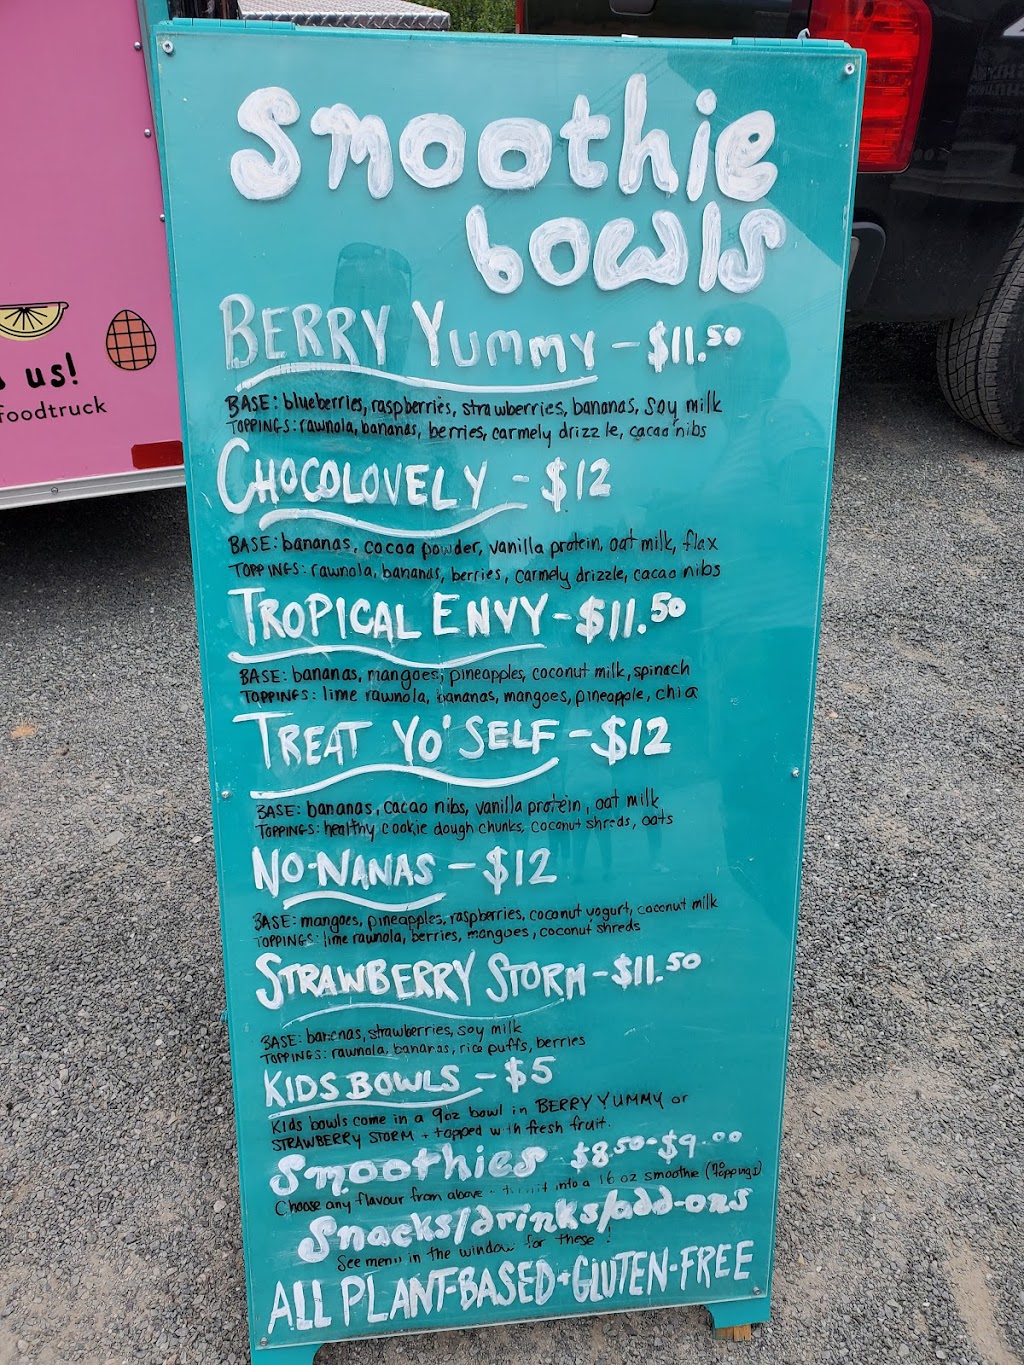 Smoothie
bowls
BERRY YUMMY - $11.50
BASE: blueberries, raspberries, strawberries, bananas, soy milk
TOPPINGS: rawnola, bananas, berries, carmely drizzle, cacao nibs
CHOCOLOVELY - $12
BASE: bananas, cocoa powder, vanilla protein, oat milk, flax
TOPPINGS: rawnola, bananas, berries, carmely drizzle, cacao nibs
TROPICAL ENVY - $11.50
BASE: bananas, mangoes, pineapples, coconut milk, spinach
TOPPINGS: lime rawnola, bananas, mangoes, pineapple, chia
TREAT YO' SELF - $12
BASE: bananas, cacao nibs, vanilla protein, oat milk
TOPPINGS: healthy cookie dough chunks, coconut shreds, oats
NO-NANAS - $12
BASE: mangoes, pineapples, raspberries, coconut yogurt, coconut milk
TOPPINGS: lime rawnola, berries, mangoes, coconut shreds
STRAWBERRY STORM - $11.50
BASE: bananas, strawberries, soy milk
TOPPINGS: rawnola, bananas, rice puffs, berries
KIDS BOWLS - $5
Kids bowls come in a 9oz bowl in BERRY YUMMY or
STRAWBERRY STORM + topped with fresh fruit.
Smoothies $8.50-$9.00
Choose any flavour from above - turn it into a 16 oz smoothie (no toppings)
Snacks/drinks/add-ons
See menu in the window for these!
ALL PLANT-BASED + GLUTEN-FREE
us!
foodtruck